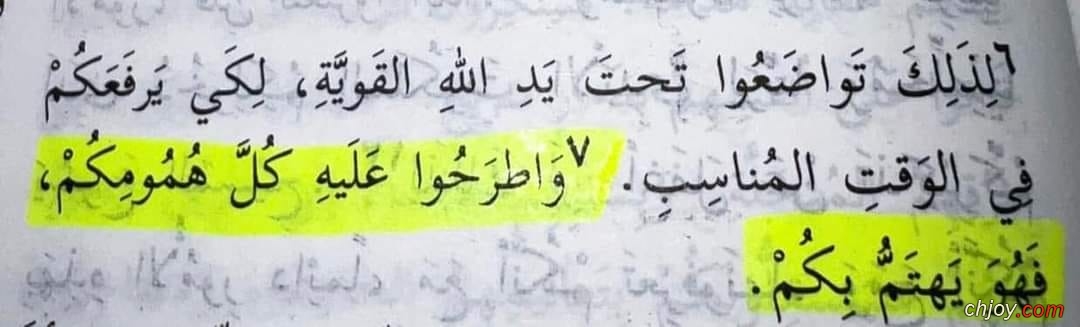 ٦لِذَلِكَ تَواضَعُوا تَحتَ يَدِ اللهِ القَويَّةِ، لِكَي يَرفَعَكُمْ
فِي الوَقتِ المُناسِبِ. ٧وَاطرَحُوا عَلَيهِ كُلَّ هُمُومِكُمْ،
فَهُوَ يَهتَمُّ بِكُمْ.
chjoy.com